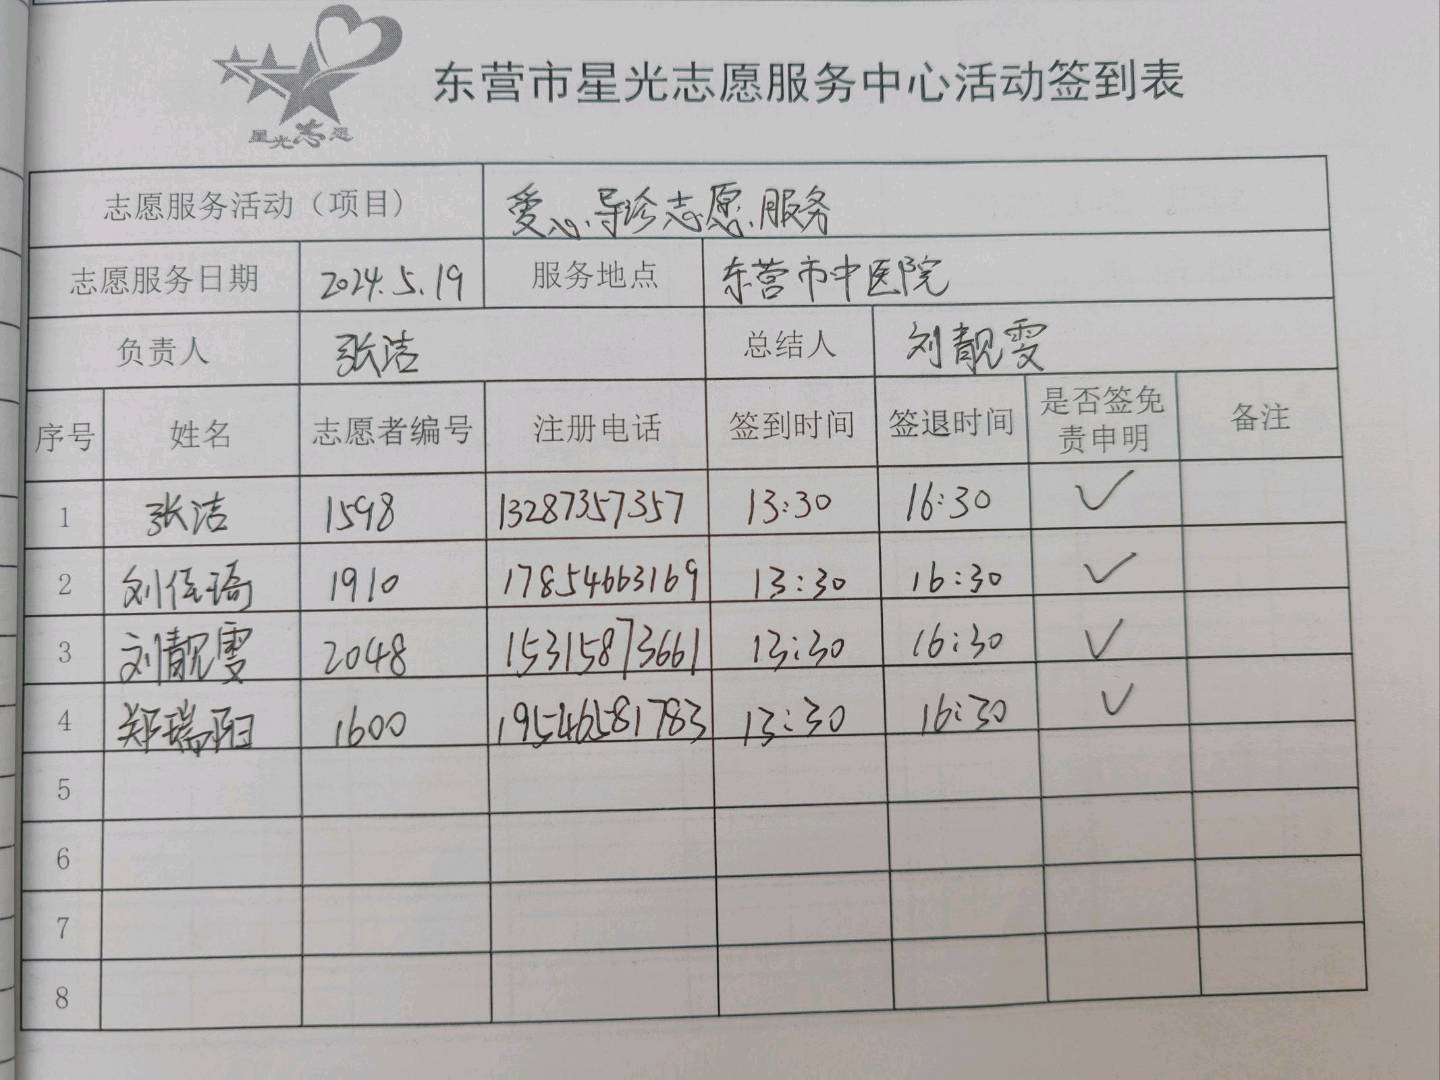 星光志愿
东营市星光志愿服务中心活动签到表
志愿服务活动（项目） 爱心导诊志愿服务
志愿服务日期 2024.5.19 服务地点 东营市中医院
负责人 张洁 总结人 刘靓雯
序号 姓名 志愿者编号 注册电话 签到时间 签退时间 是否签免责申明 备注
1 张洁 1598 13287357357 13:30 16:30 ✓
2 刘任琦 1910 17854663169 13:30 16:30 ✓
3 刘靓雯 2048 15315873661 13:30 16:30 ✓
4 郑瑞阳 1600 19546581783 13:30 16:30 ✓
5
6
7
8